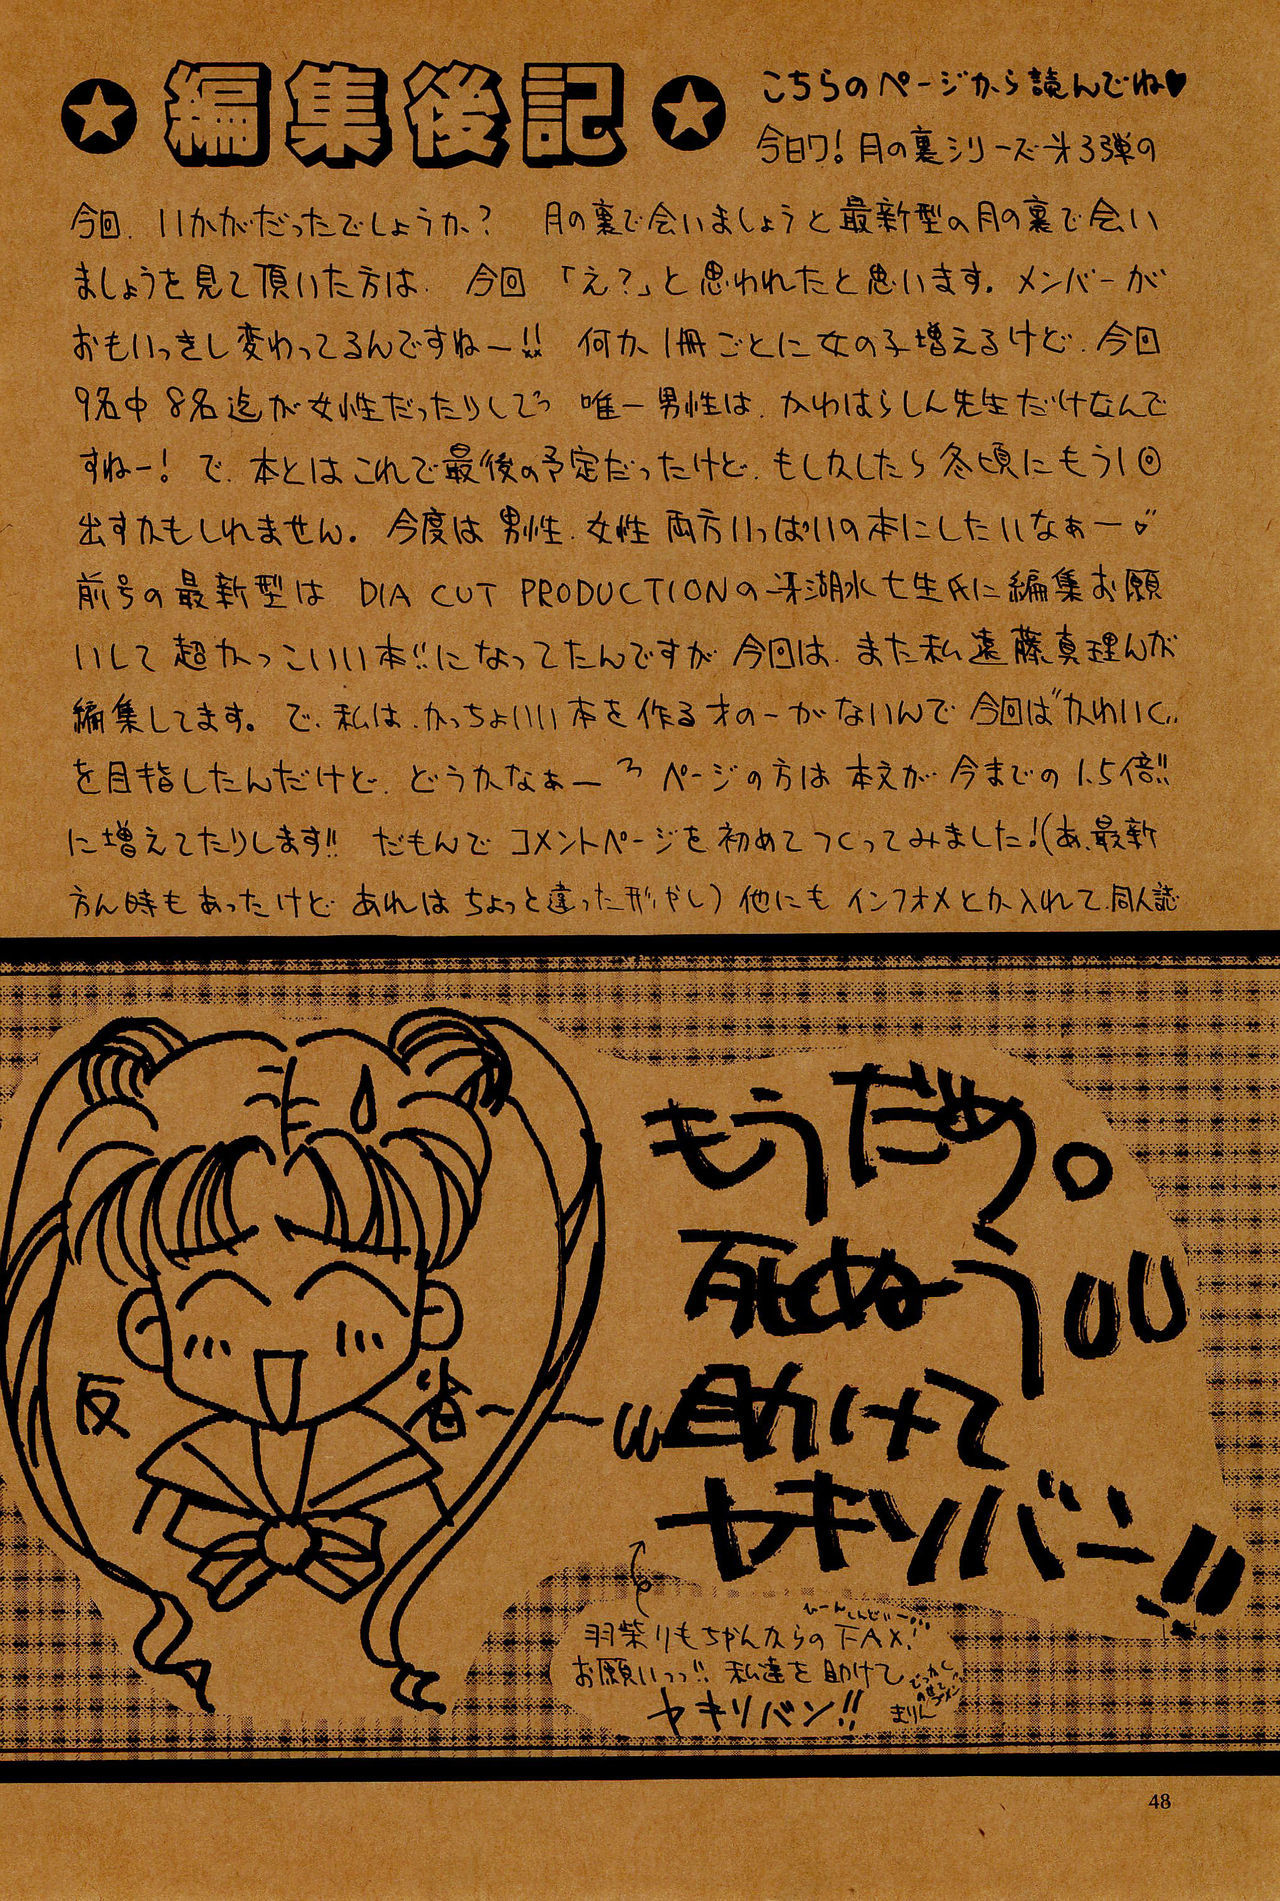 編集後記
こちらのページから読んでね♥
今日ワ!月の裏シリーズ㐧3弾の
今回、いかがだったでしょうか?月の裏で会いましょうと最新型の月の裏で会い
ましょうを見て頂いた方は、今回「え?」と思われたと思います。メンバーが
おもいっきし変わってるんですねー!!何か1冊ごとに女の子増えるけど、今回
9名中8名迄が女性だったりしてっ 唯一男性は、かわはらしん先生だけなんで
すねー!で、本とはこれで最後の予定だったけど、もしかしたら冬頃にもう1回
出すかもしれません。今度は男性、女性両方いっぱいの本にしたいなぁー
前号の最新型は DIA CUT PRODUCTIONの冴湖水七生氏に編集お願
いして超かっこいい本!!になってたんですが今回は、また私遠藤真理んが
編集してます。で、私は、かっちょいい本を作る才のーがないんで今回は"かわいく"
を目指したんだけど、どうかなぁー ページの方は本文が今までの1.5倍!!
に増えてたりします!! だもんでコメントページを初めてつくってみました!(あ、最新
方ん時もあったけどあれはちょっと違った形やし)他にもインフォメとか入れて、同人誌
もうだめ。
死ぬーう
助けて
ヤキソバーン!!
反省～～
ひーんしんどいー
羽柴りもちゃんからのFAX!
お願いっっ!!私達を助けて
ヤキソバン!!
でっかく
のせて
まりん
48